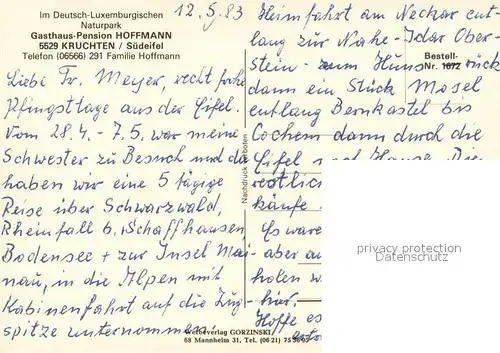 Im Deutsch-Luxemburgischen
Naturpark
Gasthaus-Pension HOFFMANN
5529 KRUCHTEN / Südeifel
Telefon (06566) 291 Familie Hoffmann
12.5.83
Liebe Fr. Meyer, recht frohe
Pfingsttage aus der Eifel.
Vom 28.4. - 7.5. war meine
Schwester zu Besuch und da
haben wir eine 5 tägige
Reise über Schwarzwald,
Rheinfall b. Schaffhausen
Bodensee + zur Insel Mai-
nau, in die Alpen mit
Kabinenfahrt auf die Zug-
spitze unternommen.
Nachdruck verboten
Heimfahrt am Neckar ent-
lang zur Nahe - Idar Ober-
stein - zum Hunsrück
Bestell-
Nr. 1672
dann ein Stück Mosel
entlang Bernkastel bis
Cochem dann durch die
Eifel nach Hause. Die
restlich
käufe
Es ware
aber au
holen w
hier.
Hoffe es
privacy protection
Datenschutz
Werbeverlag GORZINSKI
68 Mannheim 31, Tel. (06 21)